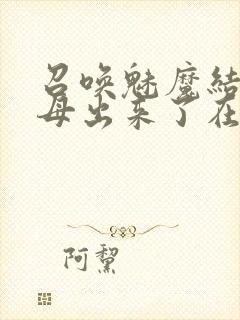 召唤魅魔结
母出来了在
阿黧